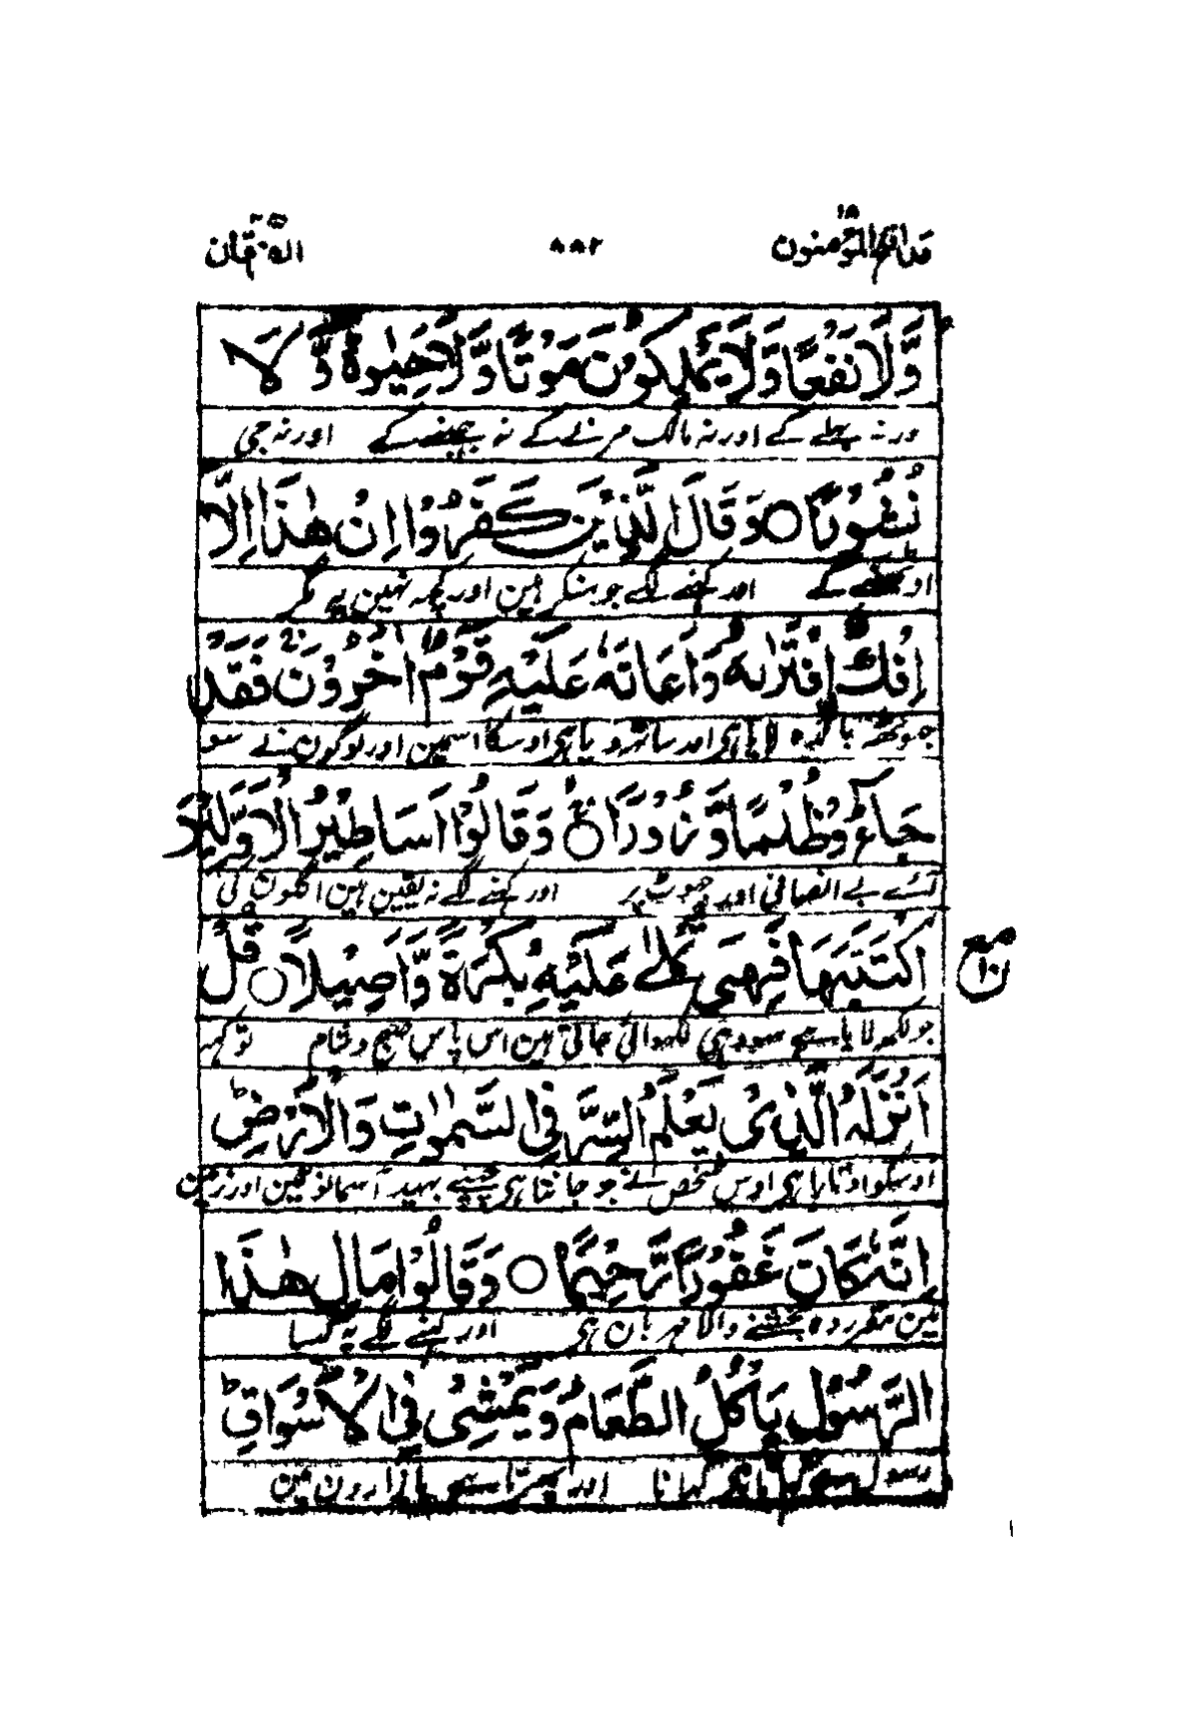 قد افلح المؤمنون ١٨ ٨٨٢ الفرقان ٢٥
وَّلَا نَفْعًا وَّلَا يَمْلِكُوْنَ مَوْتًا وَّلَا حَيٰوةً وَّ لَا
ور نہ بہلے کے اور نہ مالک مرنے کے نہ جینے کے اور نہ جی
نُشُوْرًا ○ وَ قَالَ الَّذِيْنَ كَفَرُوْا اِنْ هٰذَا اِلَّا
اوٹھنے کے اور کہنے لگے جو منکر ہین اور کچھ نہین یہ مگر
اِفْكٌ اِفْتَرٰىهُ وَ اَعَانَهٗ عَلَيْهِ قَوْمٌ اٰخَرُوْنَ فَقَدْ
جھوٹھ باندہ لایا ہی اور ساتھ دیا ہی اوسکا اسمین اور لوگون نے سو
جَآءُوْ ظُلْمًا وَّ زُوْرًا ○ وَ قَالُوْا اَسَاطِيْرُ الْاَوَّلِيْنَ
آئے بے انصافی اور جھوٹ پر اور کہنے لگے نہ نقلین ہین اگلون کی
اكْتَتَبَهَا فَهِيَ تُمْلٰى عَلَيْهِ بُكْرَةً وَّ اَصِيْلًا ○ قُلْ
جو لکھ لایا ہے سو وہی لکھوائی جاتی ہین اس پاس صبح و شام تو کہہ
اَنْزَلَهُ الَّذِيْ يَعْلَمُ السِّرَّ فِي السَّمٰوٰتِ وَ الْاَرْضِ ط
اوسکو اوتارا ہی اوس شخص نے جو جانتا ہی چھپے بہید آسمانو نمین اور زمین
اِنَّهٗ كَانَ غَفُوْرًا رَّحِيْمًا ○ وَ قَالُوْا مَالِ هٰذَا
مین مقرر وہ بخشنے والا مہربان ہی اور کہنے لگے یہ کیسا
الرَّسُوْلِ يَاْكُلُ الطَّعَامَ وَ يَمْشِيْ فِي الْاَسْوَاقِ ط
رسول ہے کہاتا ہی کہانا اور پہرتا ہے بازارون مین